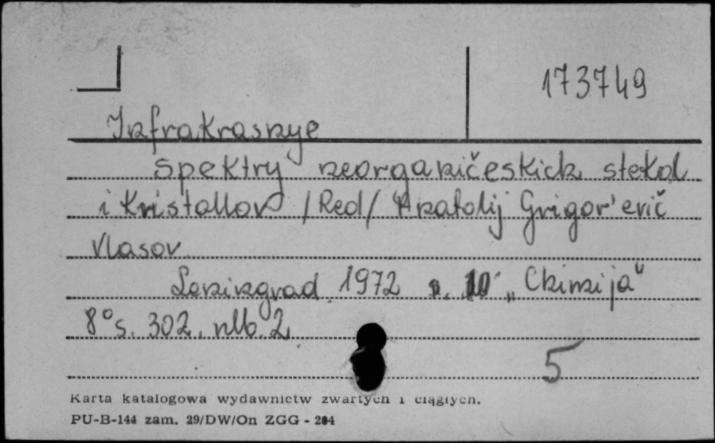 173749
Infrakrasnye
spektry neorganičeskich stekol
i kristallov /Red/ Anatolij Grigor'evič
Vlasov
Leningrad 1972 "Chimija"
8° s. 302, nlb. 2
5
Karta katalogowa wydawnictw zwartych i ciągłych.
PU-B-144 zam. 29/DW/On ZGG - 204